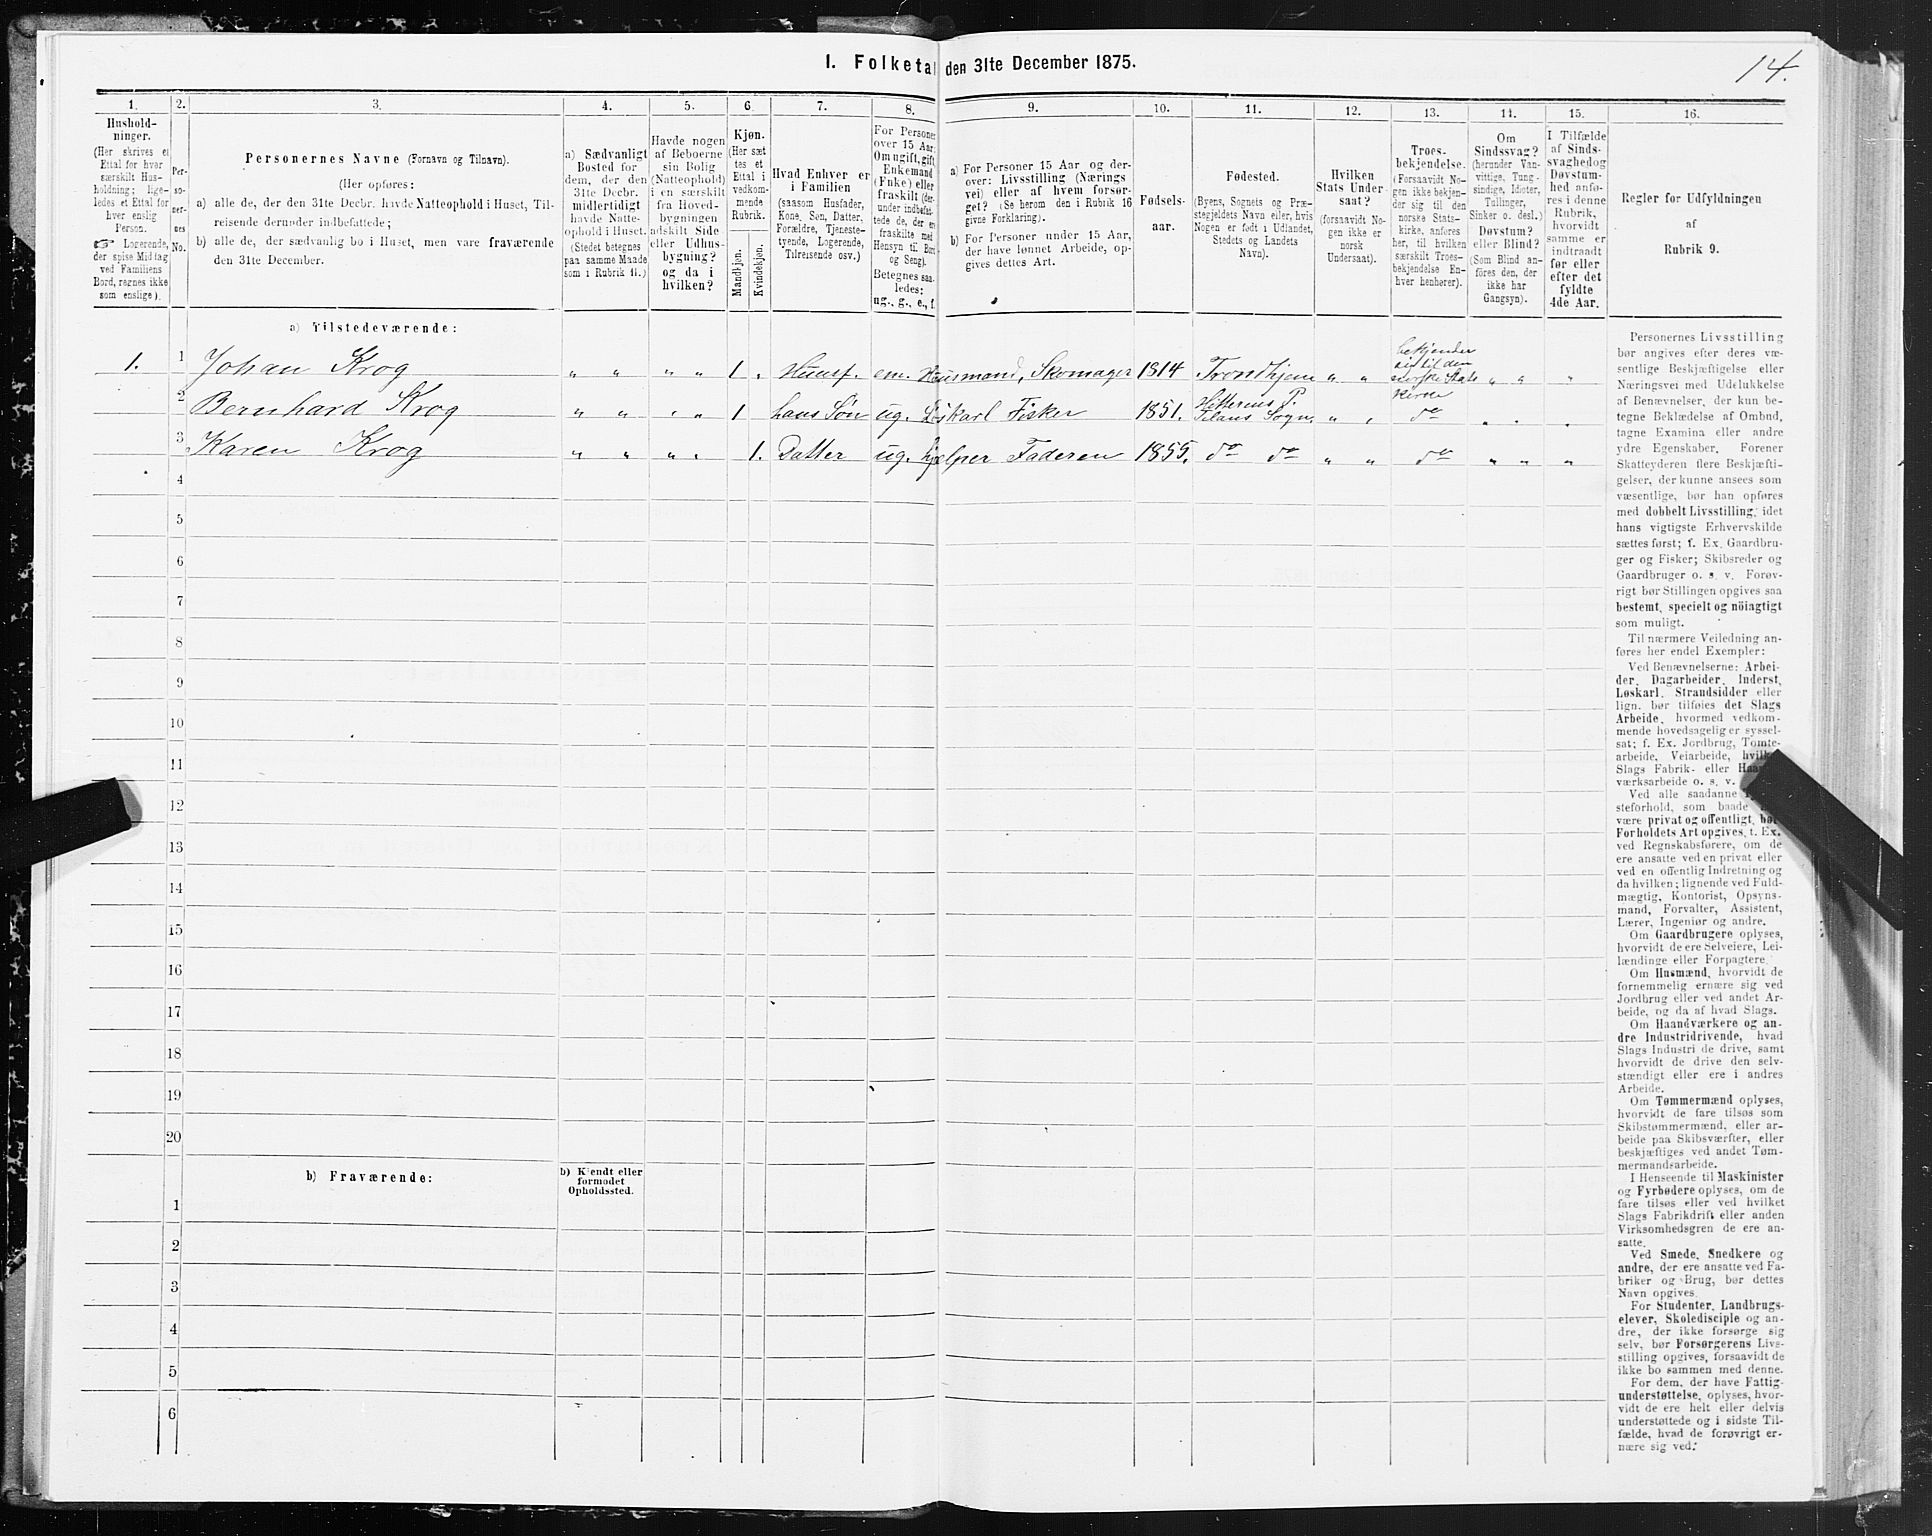 I. Folketal den 31te December 1875.
14.
1.
Hushold-
ninger.
(Her skrives et
Ettal for hver
særskilt Hus-
holdning; lige-
ledes et Ettal for
hver enslig
Person.
☞ Logerende,
der spise Middag
ved Familiens
Bord, regnes ikke
som enslige).
2.
Per-
so-
ner-
nes
No.
3.
Personernes Navne (Fornavn og Tilnavn).
(Her opføres:
a) alle de, der den 31te Decbr. havde Natteophold i Huset, Til-
reisende derunder indbefattede;
b) alle de, der sædvanlig bo i Huset, men vare fraværende
den 31te December.
4.
a) Sædvanligt
Bosted for
dem, der den
31te Decbr.
midlertidigt
havde Natte-
ophold i Huset.
(Stedet betegnes
paa samme Maade
som i Rubrik 11.)
5.
Havde nogen
af Beboerne
sin Bolig
(Natteophold)
i en særskilt
fra Hoved-
bygningen
adskilt Side
eller Udhus-
bygning?
og da i
hvilken?
6.
Kjøn.
(Her sæt
tes et
Ettal i
vedkom-
mende
Rubrik.
Mandkjøn.
Kvindekjøn.
7.
Hvad Enhver er
i Familien
(saasom Husfader,
Kone, Søn, Datter,
Forældre, Tjeneste-
tyende, Logerende,
Tilreisende osv.)
8.
For Personer
over 15 Aar:
Om ugift, gift,
Enkemand
(Enke) eller
fraskilt (der-
under indbefat-
tede de, der ere
fraskilte med
Hensyn til Bord
og Seng).
Betegnes saa-
ledes:
ug., g., e., f.
9.
a) For Personer 15 Aar og der-
over: Livsstilling (Nærings
vei) eller af hvem forsør-
get? (Se herom den i Rubrik 16
givne Forklaring).
b) For Personer under 15 Aar,
der have lønnet Arbeide, op-
gives dettes Art.
10.
Fødsels-
aar.
11.
Fødested.
(Byens, Sognets og Præ-
stegjeldets Navn eller, hvis
Nogen er født i Udlandet,
Stedets og Landets
Navn).
12.
Hvilken
Stats Under-
saat?
(forsaavidt No-
gen ikke er
norsk
Undersaat).
13.
Troes-
bekjendelse.
(Forsaavidt No-
gen ikke bekjen-
der sig til den
norske Stats-
kirke, anføres
her, til hvilken
særskilt Troes-
bekjendelse En-
hver henhører).
14.
Om
Sindssvag?
(herunder Van-
vittige, Tung-
sindige, Idioter,
Tullinger,
Sinker o. desl.)
Døvstum?
eller Blind?
(Som Blind an-
føres den, der
ikke har
Gangsyn).
15.
I Tilfælde
af Sinds-
svaghed og
Døvstum-
hed anfø-
res i denne
Rubrik,
hvorvidt
samme er
indtraadt
før eller
efter det
fyldte
4de Aar.
16.
Regler for Udfyldningen
af
Rubrik 9.
a) Tilstedeværende:
1. 1 Johan Krog „ „ „ „ 1 „ Huusf. em. Huusmand, Skomager 1814 Trondhjem „ „ bekjender sig til den norske Stats Kirke „ „ „
2 Bernhard Krog „ „ „ „ 1 hans Søn ug. Løskarl Fisker 1851. Hitterens P. Filans Sogn „ „ do „ „ „
3 Karen Krog „ „ „ „ 1. Datter ug. hjelper Faderen 1855. do do „ „ do „ „ „
4
5
6
7
8
9
10
11
12
13
14
15
16
17
18
19
20
b) Fraværende:
b) Kjendt eller
formodet
Opholdssted.
1
2
3
4
5
6
Personernes Livsstilling
bør angives efter deres væ-
sentlige Beskjæftigelse eller
Næringsvei med Udelukkelse
af Benævnelser, der kun be-
tegne Beklædelse af Ombud,
tagne Examina eller andre
ydre Egenskaber. Forener
Skatteyderen flere Beskjæfti-
gelser, der kunne ansees som
væsentlige, bør han opføres
med dobbelt Livsstilling, idet
hans vigtigste Erhvervskilde
sættes først; f. Ex. Gaardbru-
ger og Fisker; Skibsreder og
Gaardbruger o. s. v. Forøv-
rigt bør Stillingen opgives saa
bestemt, specielt og nöiagtigt
som muligt.
Til nærmere Veiledning an-
føres her endel Exempler:
Ved Benævnelserne: Arbei-
der, Dagarbeider, Inderst,
Løskarl, Strandsidder eller
lign. bør tilføies det Slags
Arbeide, hvormed vedkom-
mende hovedsagelig er syssel-
sat; f. Ex. Jordbrug, Tomte-
arbeide, Veiarbeide, hvilket
Slags Fabrik- eller Haand-
værksarbeide o. s. v.
Ved alle saadanne
steforhold, som baade
være privat og offentligt, bør
Forholdets Art opgives, t. Ex.
ved Regnskabsførere, om de
ere ansatte ved en privat eller
ved en offentlig Indretning og
da hvilken; lignende ved Fuld-
mægtig, Kontorist, Opsyns-
mand, Forvalter, Assistent,
Lærer, Ingeniør og andre.
Om Gaardbrugere oplyses,
hvorvidt de ere Selveiere, Lei-
lændinge eller Forpagtere.
Om Husmænd, hvorvidt de
fornemmelig ernære sig ved
Jordbrug eller ved andet Ar-
beide, og da af hvad Slags.
Om Haandværkere og an-
dre Industridrivende, hvad
Slags Industri de drive, samt
hvorvidt de drive den selv-
stændigt eller ere i andres
Arbeide.
Om Tømmermænd oplyses,
hvorvidt de fare tilsøs som
Skibstømmermænd, eller ar-
beide paa Skibsværfter, eller
beskjæftiges ved andet Tøm-
mermandsarbeide.
I Henseende til Maskinister
og Fyrbødere oplyses, om de
fare tilsøs eller ved hvilket
Slags Fabrikdrift eller anden
Virksomhedsgren de ere an-
satte.
Ved Smede, Snedkere og
andre, der ere ansatte ved Fa-
briker og Brug, bør dettes
Navn opgives.
For Studenter, Landbrugs-
elever, Skoledisciple og an-
dre, der ikke forsørge sig
selv, bør Forsørgerens Livs-
stilling opgives, forsaavidt de
ikke bo sammen med denne.
For dem, der have Fattig-
understøttelse, oplyses, hvor-
vidt de ere helt eller delvis
understøttede og i sidste Til-
fælde, hvad de forøvrigt er-
nære sig ved.